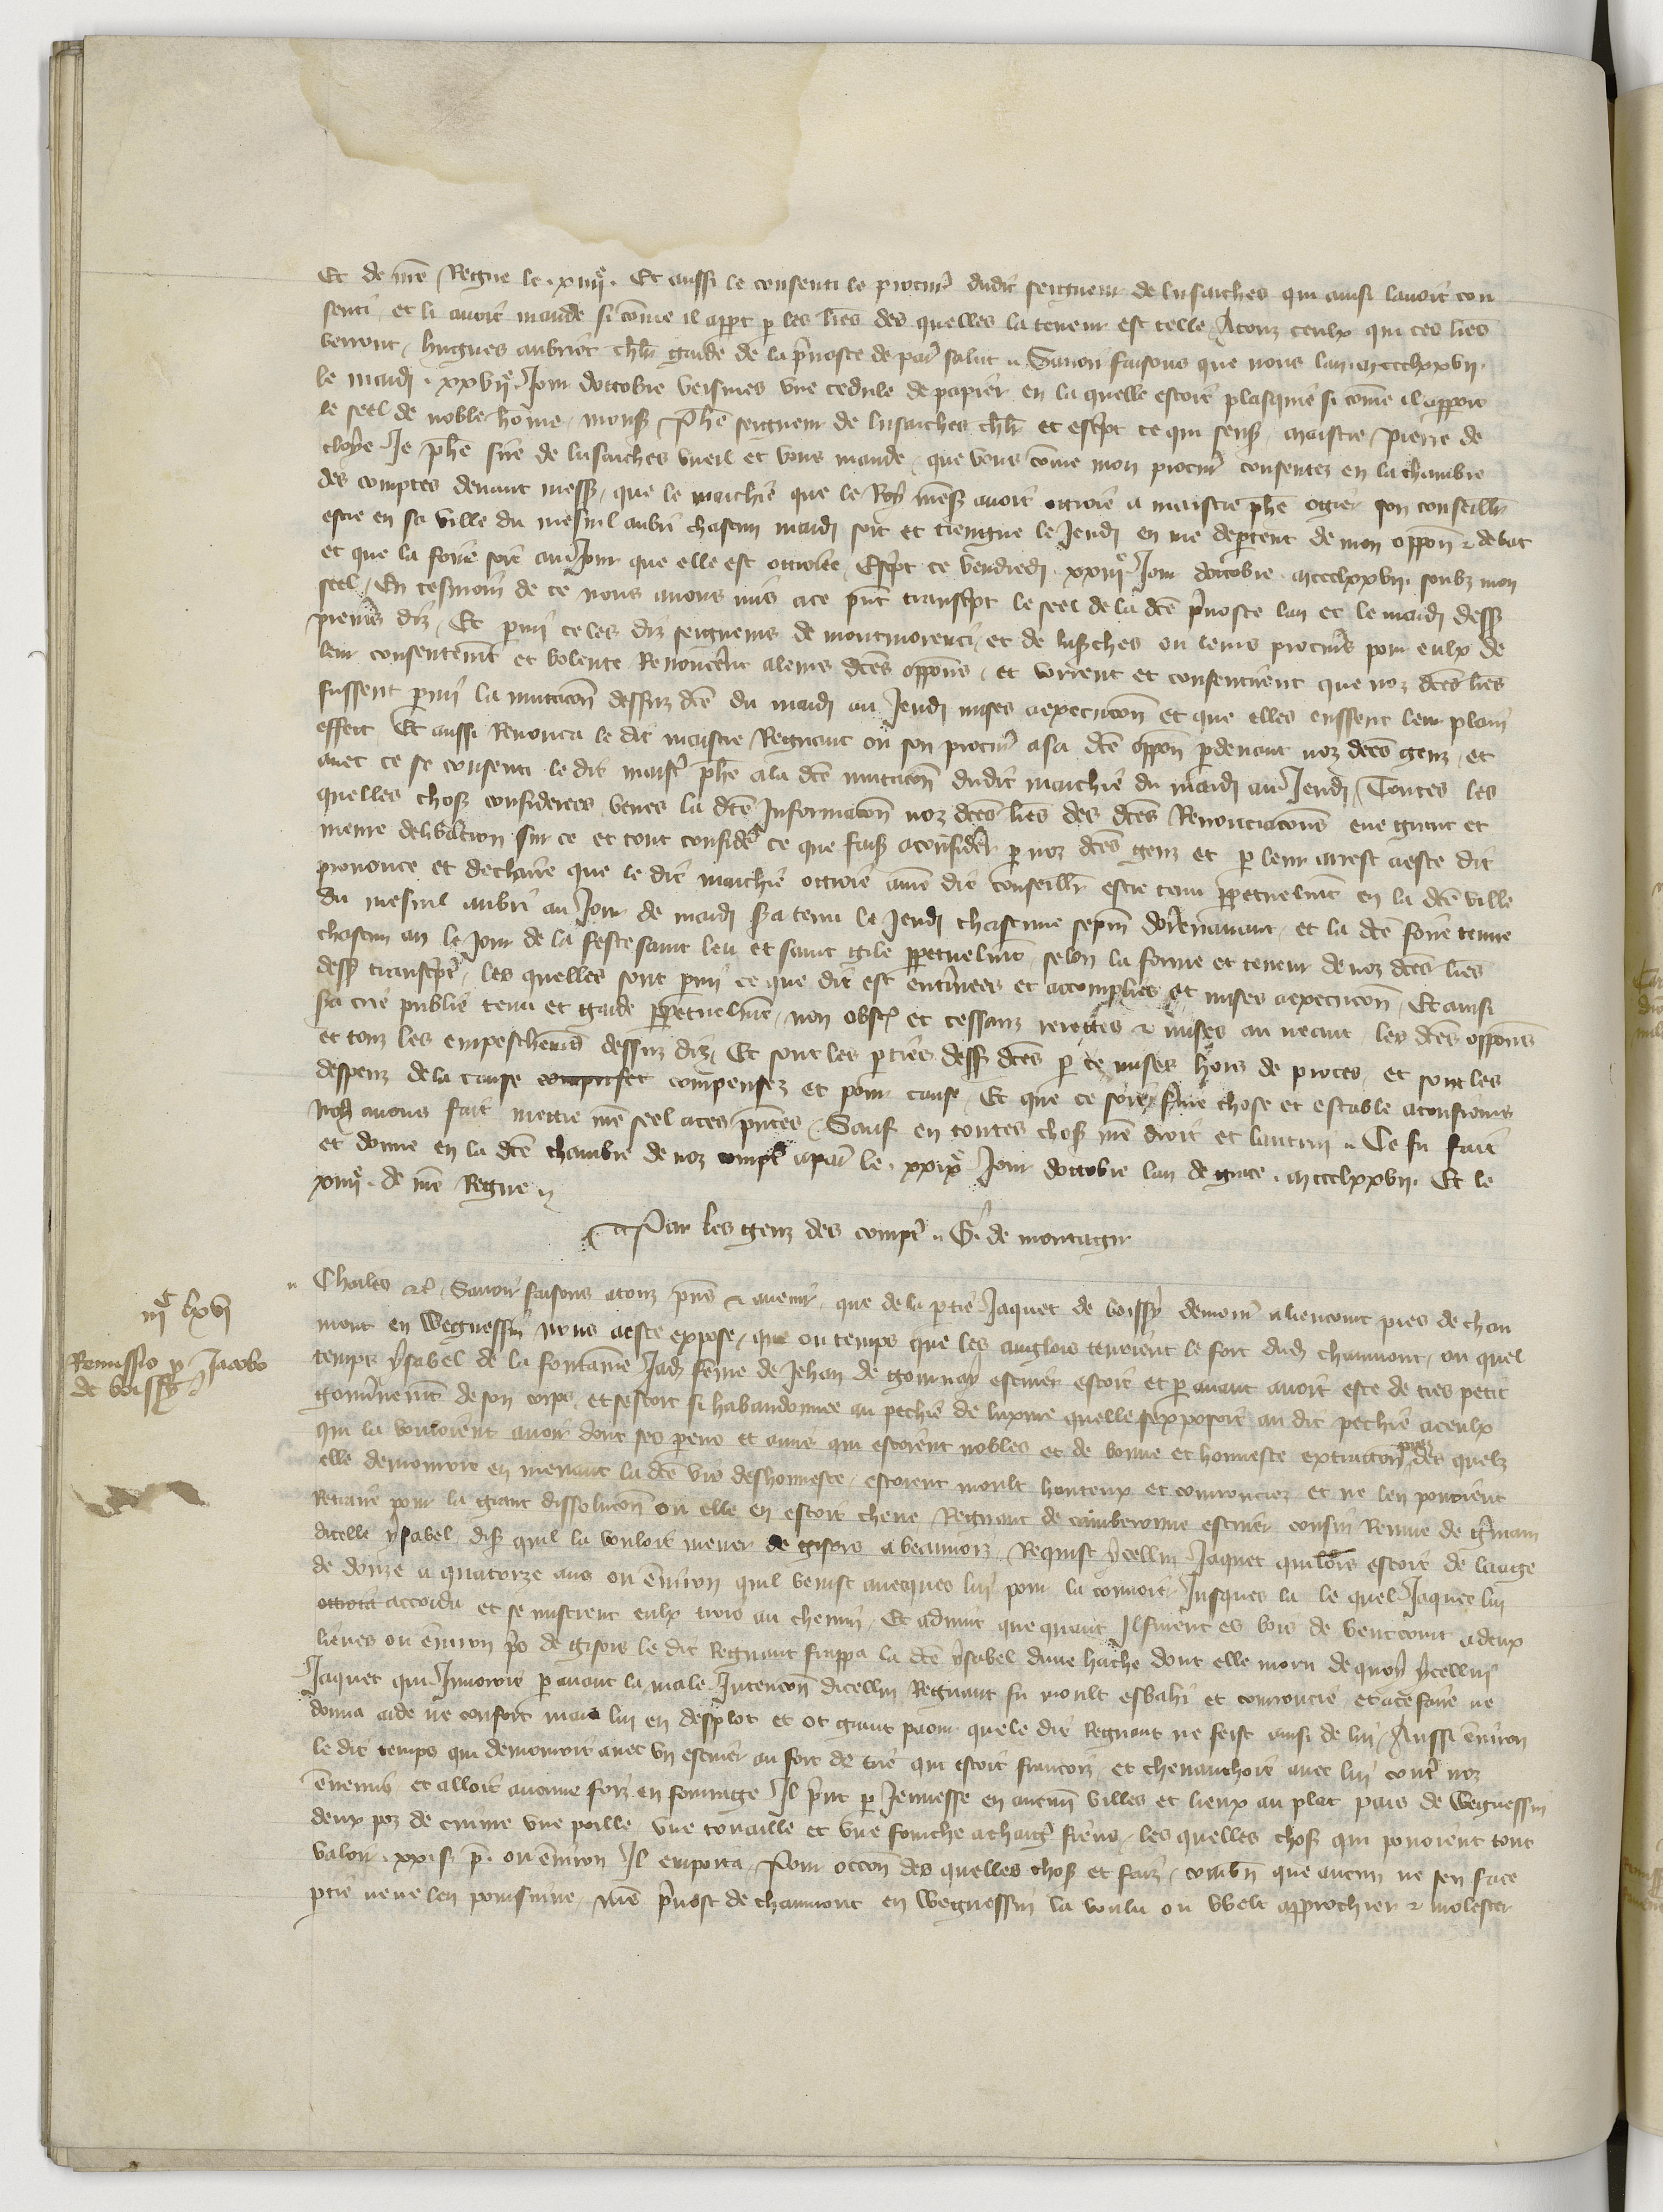 Et de nre Regne le xiiiie. Et aussi le consenti le procur dudit seigneur de lusarches qui ainsi lavoit con
senti et li avoit mande si come il appt p les lres des quelles la teneur est telle Atouz ceulx qui ces lres
verront hugues aubriot chlr garde de la prevoste de par salut Savoir faisons que nous lan mccclxxvii
le mardi xxviie Jour doctobre veismes une cedule de papier en la quelle estoit plasquie si come il apport
le seel de noble home mons Phe seigneur de lusarches chlr et escpt ce qui sens maistre pierre de
cloye Je phe sire de lusarches vueil et vous mande que vous come mon procur consentez en la chambre
des comptes devant mess que le marchie que le Roy mess avoit ottroie a maistre phe ogier son conseillr
estre en sa ville du mesnil aubri chascun mardi soit et tiengne le Jeudi en me deptent de mon oppon & debat
et que la foire soit au Jour que elle est ottroiee Escpt ce vendredi xxiiie Jour doctobre mccclxxvii soubz mon
seel En tesmoin de ce nous avons mis a ce pnt transcpt le seel de la dce prevoste lan et le mardi dess
premis diz Et parmi ce les diz seigneurs de montmorenci et de lusches ou leurs procurs pour eulx de
leur consentemt et volente Renoncerent a leurs dces oppons et vorrent et consentirent que noz dces lres
fussent parmi la mutacon dessuz dce du mardi au Jeudi mises a execucon et que elles eussent leur plain
effect Et aussi Renonca le dit maistre Regnaut ou son procur a sa dce oppon pdevant noz dces genz et
avec ce se consenti le dit maist phe a la dce mutacon dudit marchie du mardi au Jeudi Toutes les
quelles choses considerees veues la dce Informacon noz dces lres des dces Renonciacons eue grant et
meure delibacion sur ce et tout conside ce que fais a consider p noz dces genz et p leur arrest a este dit
prononce et declaire que le dit marchie ottroie aud dit conseillr estre tenu ppetuelmt en la dce ville
du mesnil aubri au Jour de mardi sa tenu le Jeudi chascune sepm dorenavant et la dce foire tenue
chascun an le Jour de la feste saint leu et saint gile ppetuelmt selon la forme et teneur de noz dces lres
dess transcptes les quelles sont parmi ce que dit est enterinees et accomplies et mises a execucon Et ainsi
sa crie publie tenu et garde ppetuelmt non obst et cessanz reiettes & mises au neant les dces oppons
et touz les empeschemens dessuz diz Et sont les pties dess dces p ce mises hors de proces et sont les
despens de la cause compensez et pour cause Et que ce soit ferme chose et estable a tousiours
Nous avons fait mettre nre seel a ces pntes Sauf en toutes choses nre droit et lautrui Ce fu fait
et donne en la dce chambre de noz compt a par le xxixe Jour doctobre lan de grace mccclxxvii Et le
xiiiie de nre Regne
Par les genz des compt G de montagu
Charles &c Savoir faisons a touz pns & avenir que de la ptie Jaquet de boissy demour a liencourt pres de chau
mont en Weguessin nous a este expose que ou temps que les anglois tenoient le fort dud chaumont ou quel
temps ysabel de la fontaine Jad feme de Jehan de gournay escuier estoit et p avant avoit este de tres petit
gouvnemt de son corps et sestoit si habandonnee au pechie de luxure quelle sexposoit au dit pechie a ceulx
iiic lxvi
Remissio p Jacobo
de boissy
qui la vouloient avoir dont ses parens et amis qui estoient nobles et de bonne et honneste extraccon pres des quelz
elle demouroit en menant la dce vie deshonneste estoient moult honteux et courrouciez et ne len povoient
Retraire pour la grant dissolucon ou elle en estoit cheue Regnaut de camberonne escuier cousin Remue de germain
dicelle ysabel dist quil la vouloit mener de gisors a beaumont Requist ycellui Jaquet qui lors estoit de laage
de douze a quatorze ans ou environ quil venist avecques lui pour la convoier Jusques la le quel Jaquet lui
ottroia accorda et se mistrent eulx trois au chemin Et advint que quant Ilz furent es bois de bertcourt a deux
lieues ou environ pres de gisors le dit Regnaut frappa la dce ysabel dune hache dont elle moru de quoy ycellui
Jaquet qui Ignoroit p avant la male Intencon dicellui Regnaut fu moult esbahi et courroucie et a ce faire ne
donna aide ne confort mais lui en desplot et ot grant paour que le dit Regnaut ne feist ainsi de lui Aussi environ
le dit temps qui demouroit avec un escuier au fort de trie qui estoit francois et chevauchoit avec lui contre noz
ennemis et alloit aucune foiz en fourrage Il print p Jeunesse en aucuns villes et lieux au plat pais de Weguessin
deux poz de cuivre une paille une touaille et une fourche a chargr fiens les quelles choses qui povoient tout
valoir xxx s p ou environ Il emporta Pour occon des quelles choses et faiz combn que aucun ne sen face
ptie ne ne len poursuive nre prevost de chaumont en Weguessin la voulu ou vuelt approchier & molester